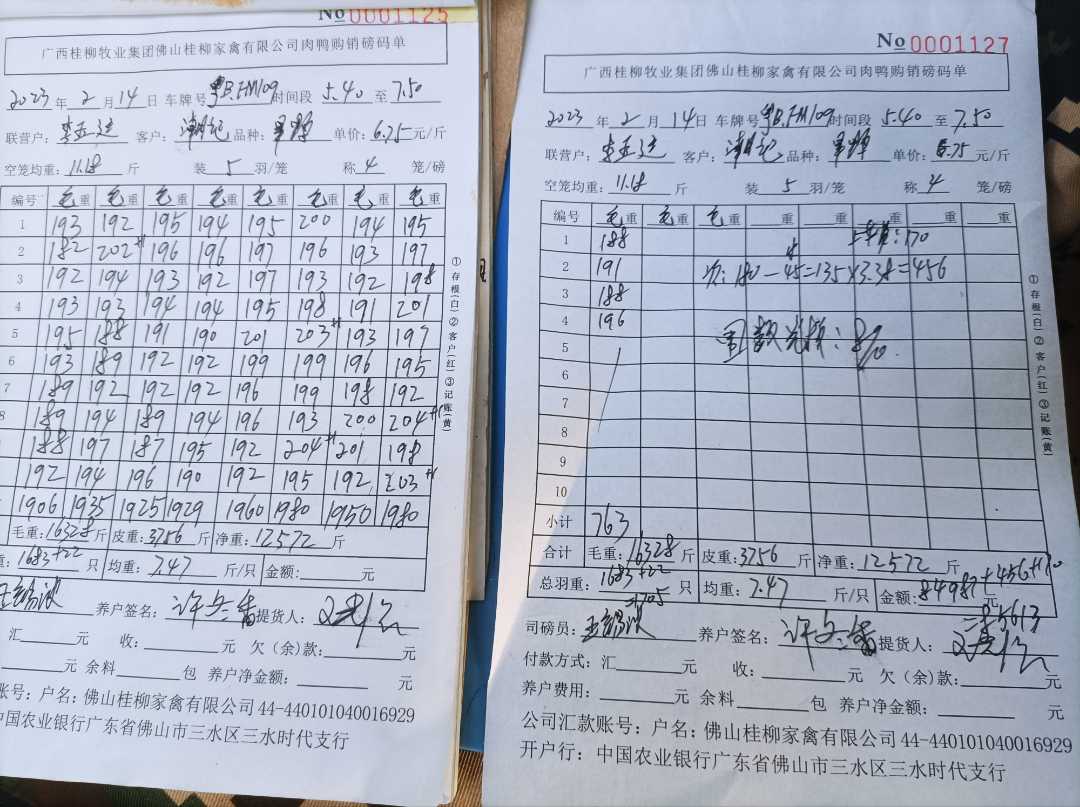 No 0001125
广西桂柳牧业集团佛山桂柳家禽有限公司肉鸭购销磅码单
2023年2月14日 车牌号粤B.FM109时间段 5.40 至 7.50
联营户： 客户： 品种： 单价：6.75元/斤
空笼均重：11.18 斤 装 5 羽/笼 称 4 笼/磅
编号 毛重 毛重 毛重 毛重 毛重 毛重 毛重 毛重
1 193 192 195 194 195 200 194 195
2 182 202+1 196 196 197 196 193 197
3 192 194 193 192 197 193 192 198
4 193 193 194 194 195 198 191 201
5 195 188 191 190 201 203+1 193 197
6 193 189 192 192 199 199 196 195
7 189 192 192 192 196 199 198 192
8 189 194 189 194 196 193 200 204+1
188 197 187 195 192 204+1 201 198
192 194 196 190 192 195 192 203+1
1906 1935 1925 1929 1960 1980 1950 1980
毛重：16328斤 皮重：3756 斤 净重：12572 斤
重：1683+22 只 均重：7.47 斤/只 金额： 元
养户签名： 提货人：
汇 元 收： 元 欠（余）款： 元
元 余料 包 养户净金额： 元
账号：户名：佛山桂柳家禽有限公司 44-440101040016929
中国农业银行广东省佛山市三水区三水时代支行
①存根（白）②客户（红）③记账（黄）
No 0001127
广西桂柳牧业集团佛山桂柳家禽有限公司肉鸭购销磅码单
2023年2月14日 车牌号粤B.FM109时间段 5.40 至 7.50
联营户： 客户： 品种： 单价：6.75元/斤
空笼均重：11.18 斤 装 5 羽/笼 称 4 笼/磅
编号 毛重 毛重 毛重 重 重 重 重 重
1 188 ：170
2 191 次：180－45＝135×3.38＝456
3 188
4 196
5
6
7
8
9
10
小计 763
合计 毛重：16328斤 皮重：3756 斤 净重：12572 斤
总羽重：1683+22 只 均重：7.47 斤/只 金额：84987+456+170 元
=1705 =85613
司磅员： 养户签名： 提货人：
付款方式：汇 元 收： 元 欠（余）款： 元
养户费用： 元 余料 包 养户净金额： 元
公司汇款账号：户名：佛山桂柳家禽有限公司 44-440101040016929
开户行：中国农业银行广东省佛山市三水区三水时代支行
①存根（白）②客户（红）③记账（黄）